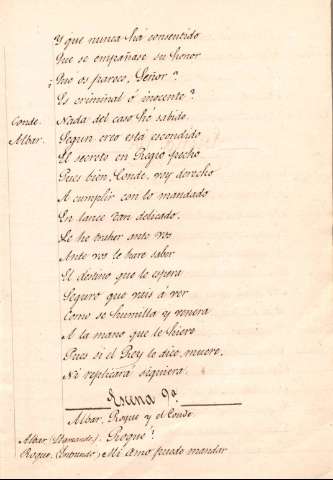 Y que nunca há consentido
Que se empañase su honor
¿Que os parece, Señor?
Es criminal ó inocente?
Conde. Nada del caso hé sabido.
Albar. Segun creo está escondido
El secreto en Regio pecho
Pues bien, Conde, voy derecho
A cumplir con lo mandado
En lance tan delicado.
Le he traher ante vos
Ante vos le haré saber
El destino que le espera
Seguro que veis á ver
Como se humilla y venera
A la mano que le hiere
Pues si el Rey le dice, muere,
Ni replicará siquiera.
Escena 9a
Albar, Roque y el Conde
Albar (Llamando). Roque!
Roque. (Entrando) Mi Amo puede mandar